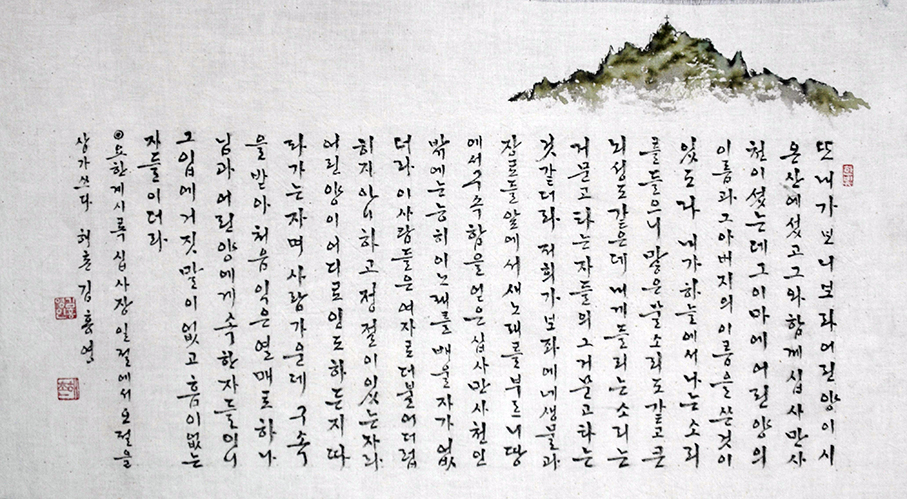 또 내가 보니 보라 어린 양이 시
온 산에 섰고 그와 함께 십사만 사
천이 섰는데 그 이마에 어린 양의
이름과 그 아버지의 이름을 쓴 것이
있도다 내가 하늘에서 나는 소리
를 들으니 많은 물소리도 같고 큰
뇌성도 같은데 내게 들리는 소리는
거문고 타는 자들의 그 거문고 타는
것 같더라 저희가 보좌와 네 생물과
장로들 앞에서 새 노래를 부르니 땅
에서 구속함을 얻은 십사만 사천인
밖에는 능히 이 노래를 배울 자가 없
더라 이 사람들은 여자로 더불어 더럽
히지 아니하고 정절이 있는 자라
어린 양이 어디로 인도하든지 따
라가는 자며 사람 가운데 구속
을 받아 처음 익은 열매로 하나
님과 어린 양에게 속한 자들이니
그 입에 거짓말이 없고 흠이 없는
자들이더라
◎요한계시록 십사장 일절에서 오절을
상가 쓰다 허훈 김홍영